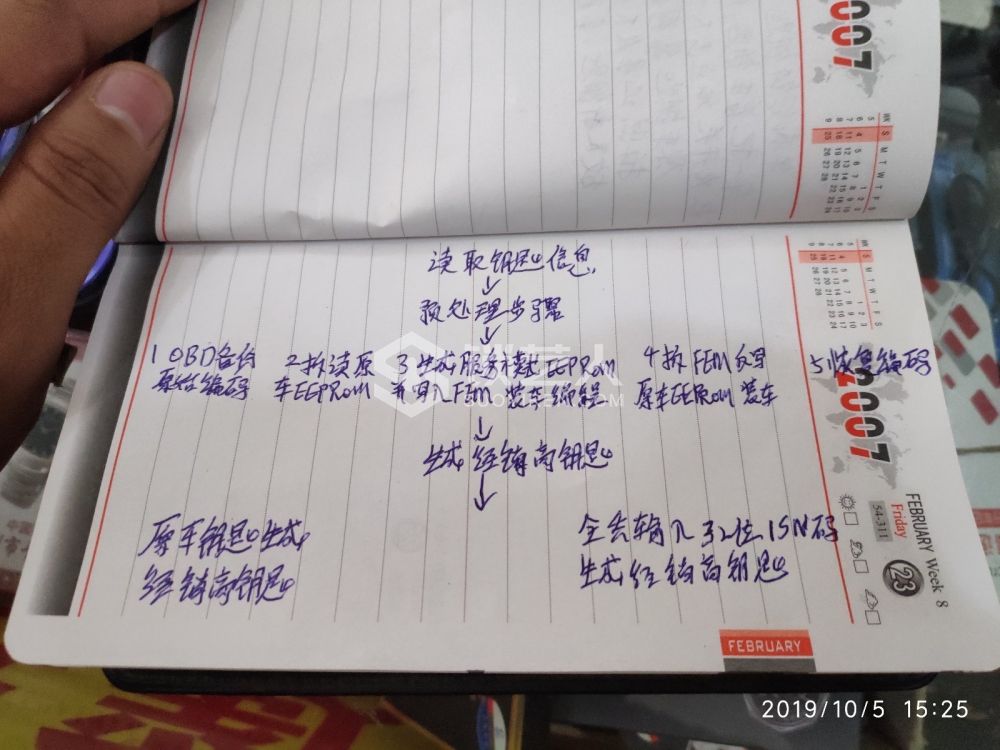 2007
2007
读取钥匙信息
↓
预处理步骤
↓
1 OBD备份
原始编码
2 拆读原
车EEPROM
3 生成服务模式EEPROM
并写入FEM 装车编程
4 拆 FEM 反写
原车EEPROM 装车
5 恢复编码
↓
生成经销商钥匙
↓
原车钥匙生成
经销商钥匙
全丢输入32位ISN码
生成经销商钥匙
FEBRUARY Week 8
Friday
54-311
23
FEBRUARY
2019/10/5 15:25